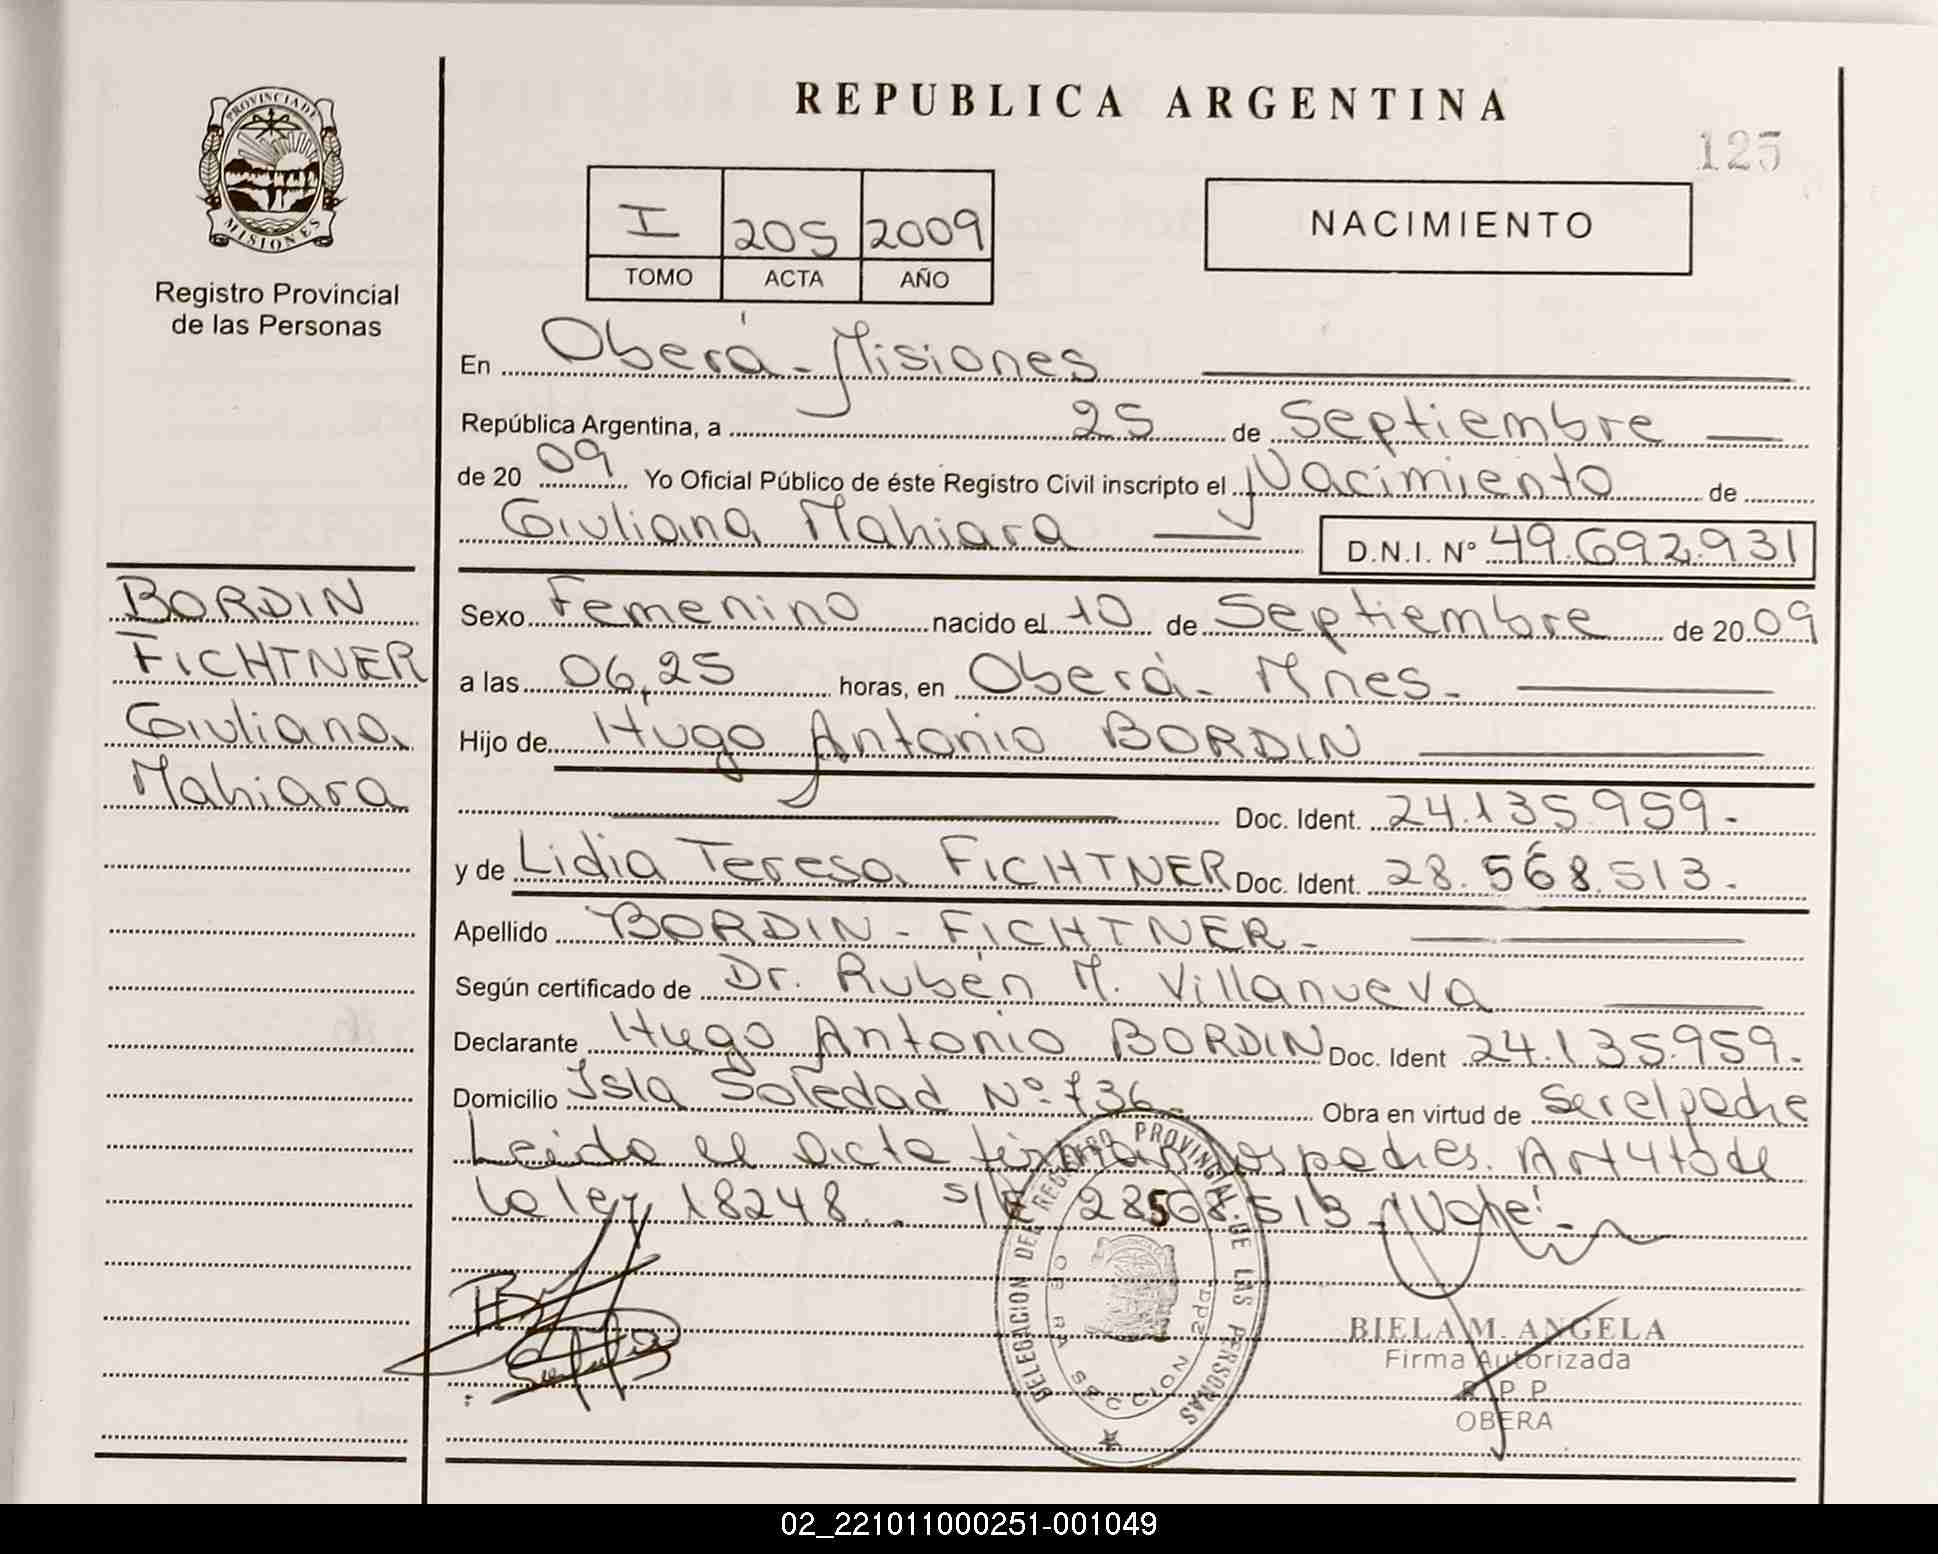 REPUBLICA ARGENTINA
125
PROVINCIA DE MISIONES
Registro Provincial
de las Personas
I 205 2009
TOMO ACTA AÑO
NACIMIENTO
En Oberá - Misiones
República Argentina, a 25 de Septiembre
de 20 09 Yo Oficial Público de éste Registro Civil inscripto el Nacimiento de
Giuliana Mahiara D.N.I. Nº 49.692.931
BORDIN
FICHTNER
Giuliana
Mahiara
Sexo Femenino nacido el 10 de Septiembre de 20 09
a las 06,25 horas, en Oberá - Mnes.
Hijo de Hugo Antonio BORDIN
Doc. Ident. 24.135.959.
y de Lidia Teresa FICHTNER Doc. Ident. 28.568.513.
Apellido BORDIN - FICHTNER -
Según certificado de Dr. Rubén M. Villanueva
Declarante Hugo Antonio BORDIN Doc. Ident 24.135.959.
Domicilio Isla Soledad Nº 736 Obra en virtud de ser el padre
Leida el acta firman los padres. Art 4to de
la ley 18248. s/E 28568.513 Vale
DELEGACION DEL REGISTRO PROVINCIAL DE LAS PERSONAS
OBERA SECCION
BIELA M. ANGELA
Firma Autorizada
R P P
OBERA
02_221011000251-001049